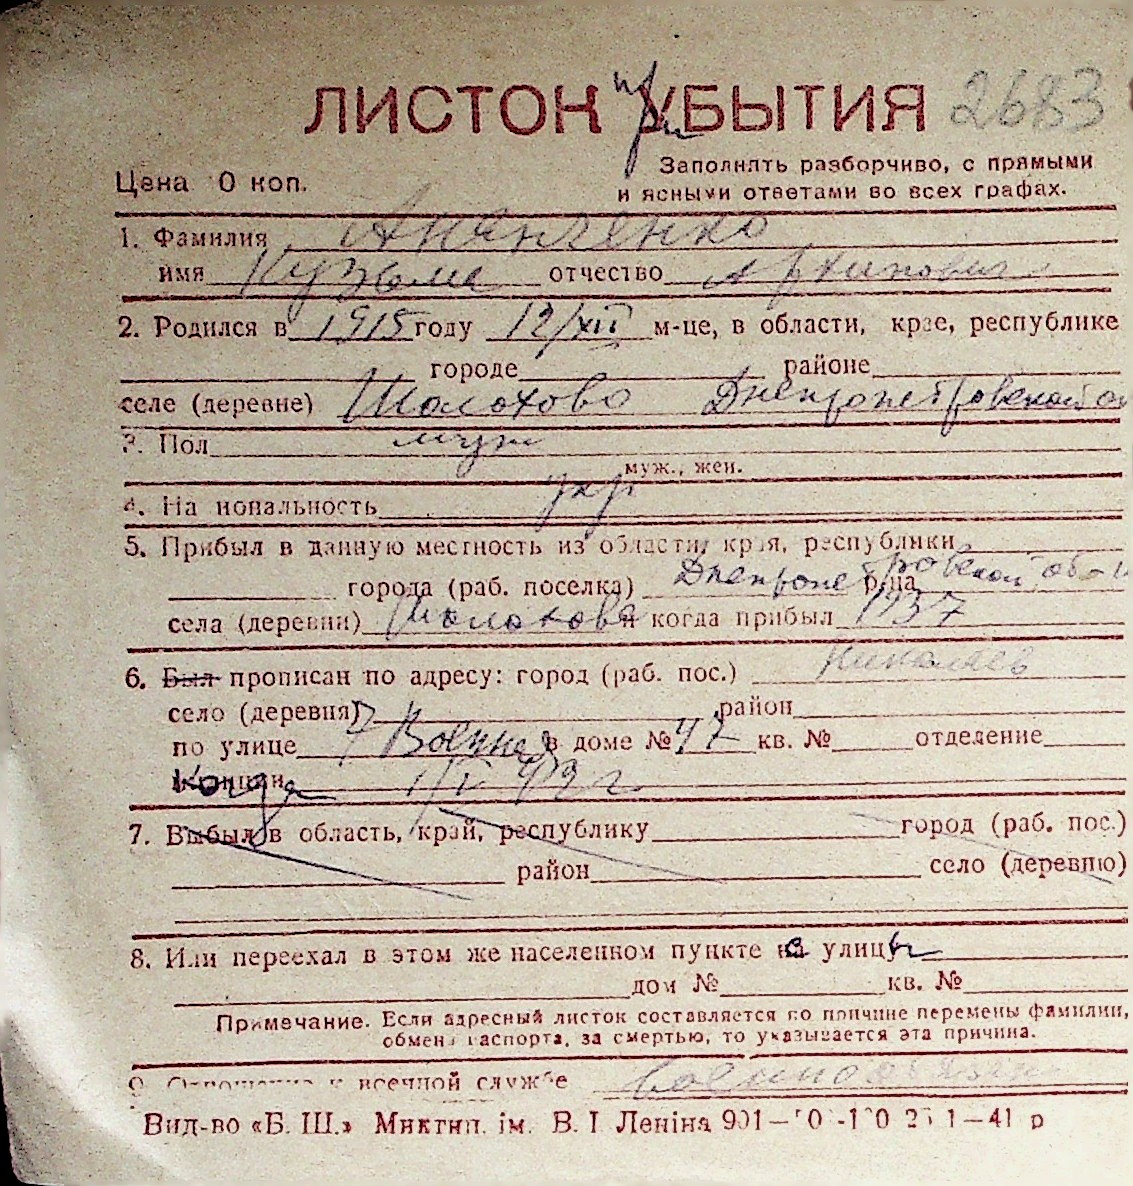 ЛИСТОК УБЫТИЯ 2683
при
Цена 0 коп.
Заполнять разборчиво, с прямыми
и ясными ответами во всех графах.
1. Фамилия Ананченко
имя Кузьма отчество Архипович
2. Родился в 1915 году 12/XII м-це, в области, крае, республике
городе районе
селе (деревне) Шолохово Днепропетровской об
3. Пол муж
муж., жен.
4. На иональность укр
5. Прибыл в данную местность из области, края, республики
города (раб. поселка) Днепропетровской обл р-на
села (деревни) Шолохово и когда прибыл 1937
6. Был прописан по адресу: город (раб. пос.) Николаев
село (деревня) район
по улице 7 Военная в доме № 47 кв. № отделение
Когда
7. Выбыл в область, край, республику город (раб. пос.)
район село (деревню)
8. Или переехал в этом же населенном пункте с улицы
дом № кв. №
Примечание. Если адресный листок составляется по причине перемены фамилии,
обмена паспорта, за смертью, то указывается эта причина.
9. Отношение к военной службе военнообязан
Вид-во «Б. Ш.» Миктип. ім. В. І Леніна